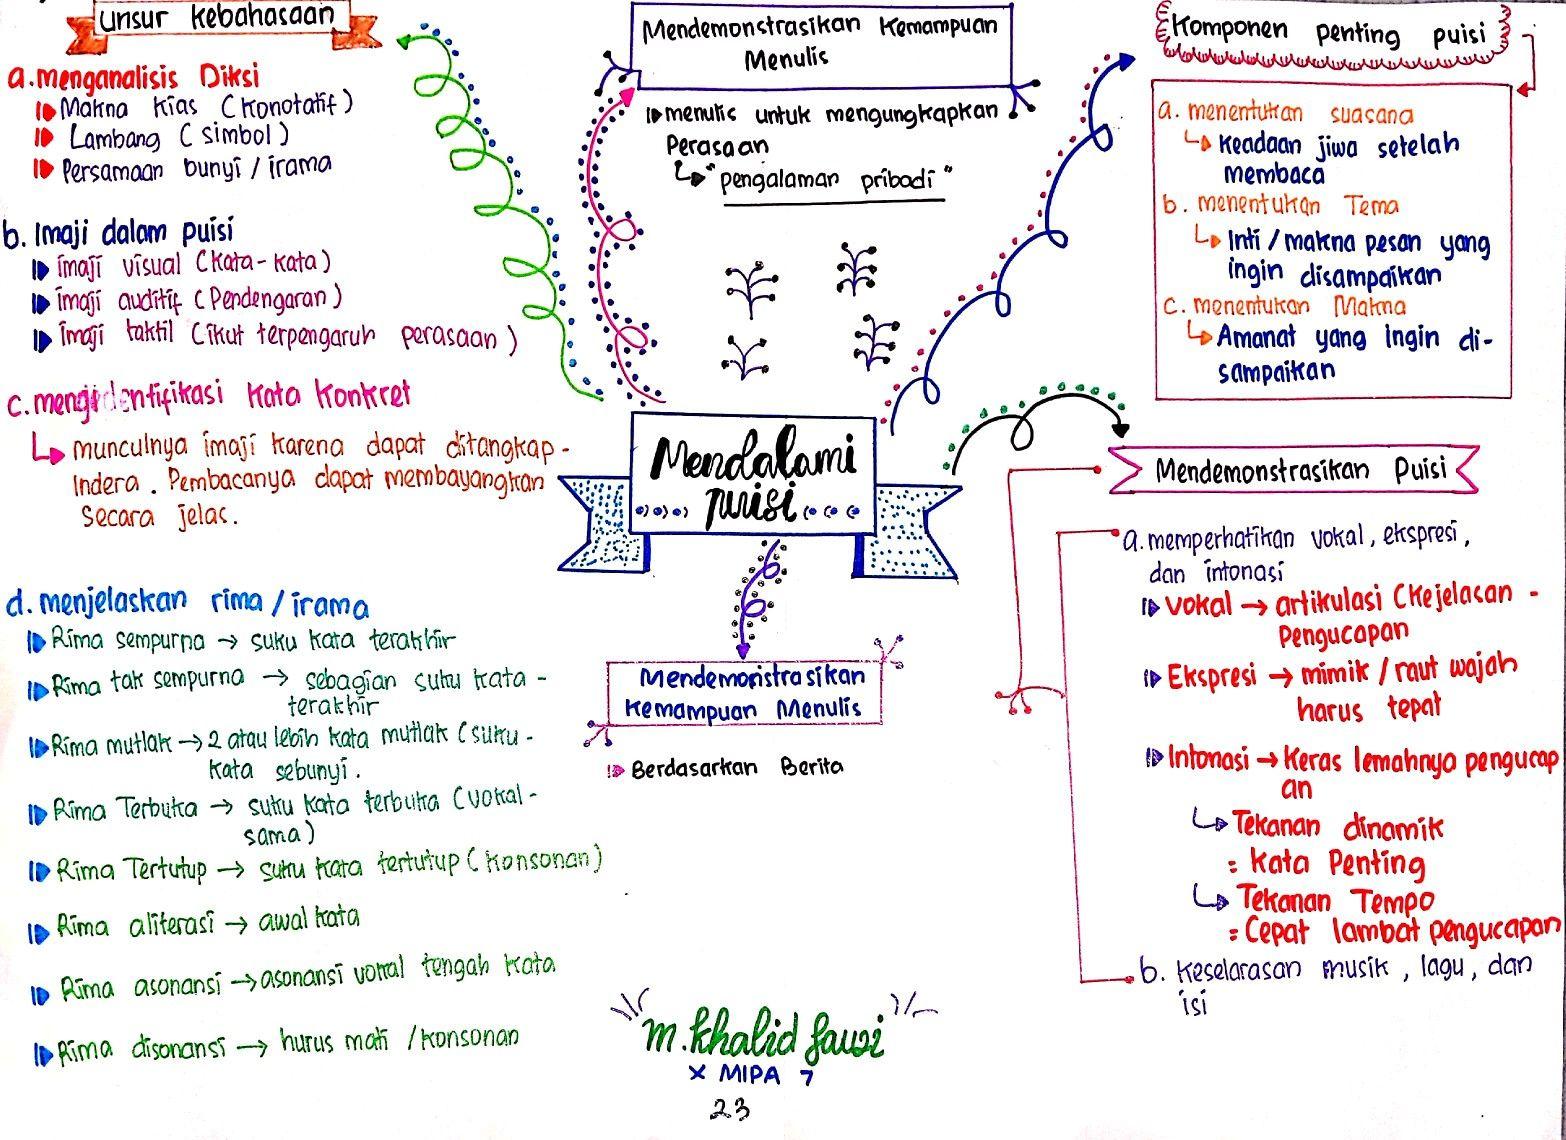 Unsur kebahasaan
a. menganalisis Diksi
Makna kias (konotatif)
Lambang (simbol)
Persamaan bunyi / irama
b. Imaji dalam puisi
imaji visual (kata-kata)
imaji auditif (Pendengaran)
imaji taktil (ikut terpengaruh perasaan)
c. mengidentifikasi kata konkret
munculnya imaji karena dapat ditangkap -
Indera. Pembacanya dapat membayangkan
Secara jelas.
d. menjelaskan rima / irama
Rima sempurna → suku kata terakhir
Rima tak sempurna → sebagian suku kata -
terakhir
Rima mutlak → 2 atau lebih kata mutlak (suku -
kata sebunyi.
Rima Terbuka → suku kata terbuka (vokal -
sama)
Rima Tertutup → suku kata tertutup (konsonan)
Rima aliterasi → awal kata
Rima asonansi → asonansi vokal tengah kata
Rima disonansi → hurus mati / konsonan
Mendemonstrasikan Kemampuan
Menulis
menulis untuk mengungkapkan
Perasaan
"pengalaman pribadi"
Mendalami
puisi
Mendemonstrasikan
Kemampuan Menulis
Berdasarkan Berita
m.khalid fauzi
X MIPA 7
23
Komponen penting puisi
a. menentukan suasana
Keadaan jiwa setelah
membaca
b. menentukan Tema
Inti / makna pesan yang
ingin disampaikan
c. menentukan Makna
Amanat yang ingin di-
sampaikan
Mendemonstrasikan Puisi
a. memperhatikan vokal, ekspresi,
dan intonasi
Vokal → artikulasi (kejelasan -
Pengucapan
Ekspresi → mimik / raut wajah
harus tepat
Intonasi → Keras lemahnya pengucap
an
Tekanan dinamik
= kata Penting
Tekanan Tempo
= Cepat lambat pengucapan
b. keselarasan musik, lagu, dan
isi